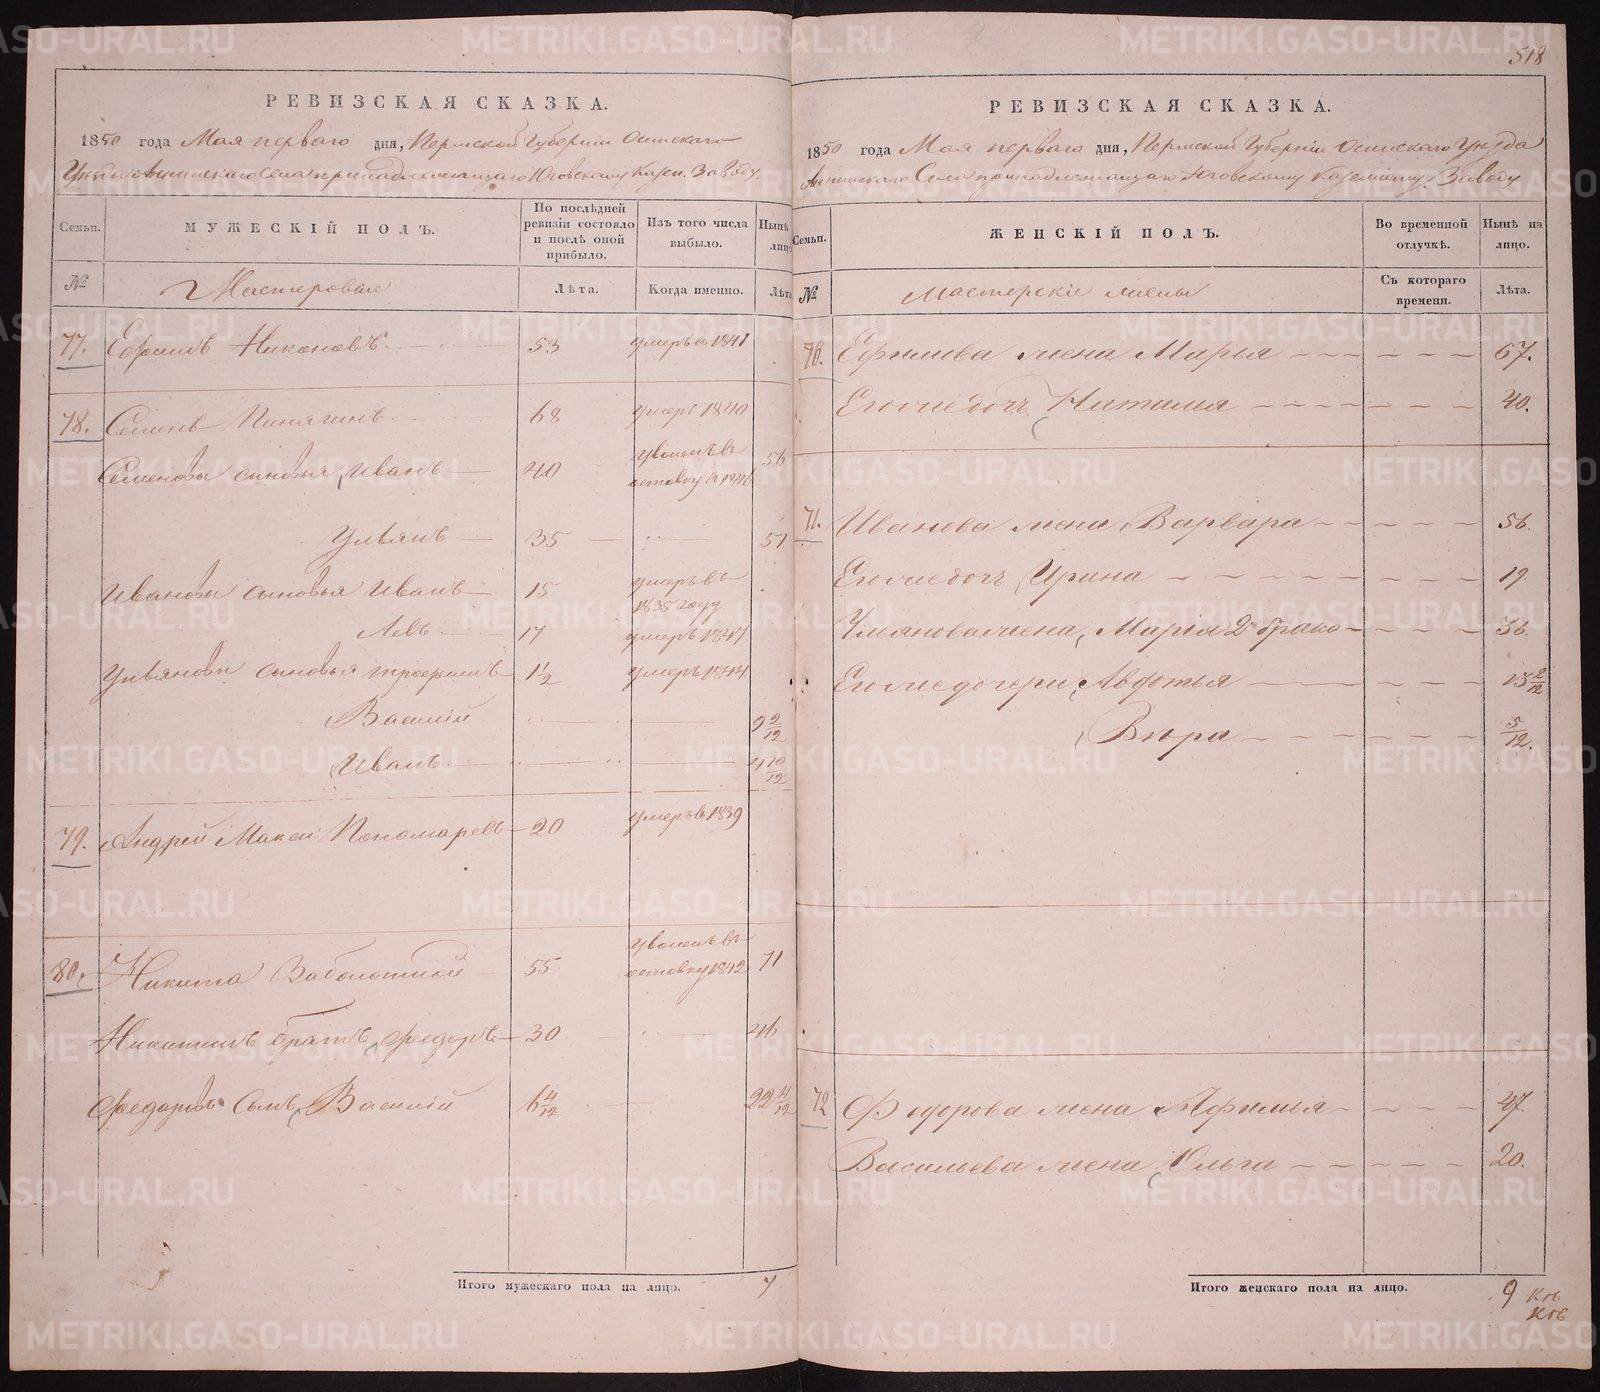 518
РЕВИЗСКАЯ СКАЗКА.
1850 года Мая перваго дня, Пермской Губерніи Осинскаго
Уѣзда Аннинскаго Села принадлежащаго Юговскому Казен. Заводу
Семьи.
МУЖЕСКІЙ ПОЛЪ.
По послѣдней ревизіи состояло и послѣ оной прибыло.
Изъ того числа выбыло.
Нынѣ на лицо
№
Мастеровые
Лѣта.
Когда именно.
Лѣта
77. Ефимъ Никоновъ 53 умеръ въ 1841
78. Семенъ Пинягинъ 68 умеръ 1840
Семеновы сыновья, Иванъ 40 уволенъ въ отставку въ 1846 56
Ульянъ 35 51
Ивановы сыновья Иванъ 15 умеръ въ 1835 году
Левъ 17 умеръ 1847
Ульяновы сыновья Трофимъ 1½ умеръ 1844
Василій 9 2/12
Иванъ 4 10/12
79. Андрей Макси: Пономаревъ 20 умеръ въ 1839
80. Никита Заболотной 55 уволенъ въ отставку 1842 71
Никитинъ братъ, Федоръ 30 46
Федоровъ сынъ, Василій 6 4/12 22 4/12
Итого мужескаго пола на лицо. 7
РЕВИЗСКАЯ СКАЗКА.
1850 года Мая перваго дня, Пермской Губерніи Осинскаго Уѣзда
Аннинскаго Села принадлежащаго Юговскому Казенному Заводу
Семьи.
ЖЕНСКІЙ ПОЛЪ.
Во временной отлучкѣ.
Нынѣ на лицо.
№
Мастерскіе жены
Съ котораго времени.
Лѣта.
70. Ефимова жена Марья 67.
Его же дочь Наталья 40.
71. Иванова жена, Варвара 56.
Его же дочь, Ирина 19
Ульянова жена, Марія 2 брака 36.
Его же дочери, Авдотья 13 2/12
Вѣра 5/12.
72 Федорова жена Афимья 47.
Васильева жена, Ольга 20.
Итого женскаго пола на лицо. 9
METRIKI.GASO-URAL.RU